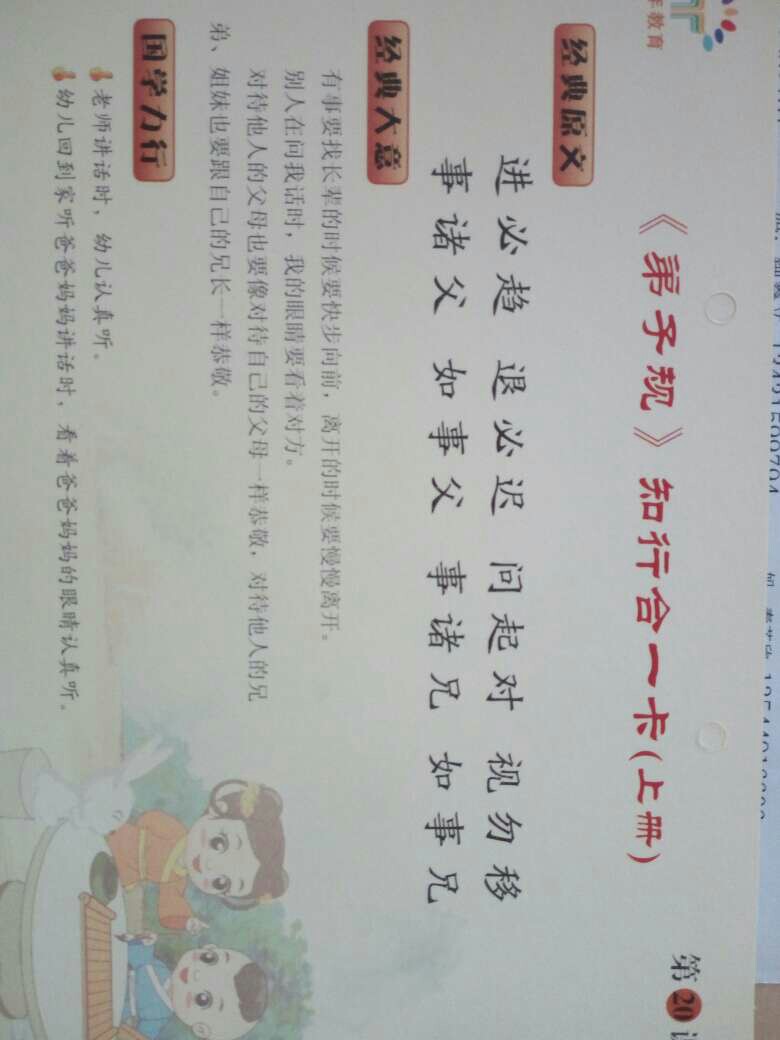 年教育
第20课
《弟子规》知行合一卡(上册)
经典原文
进必趋 退必迟 问起对 视勿移
事诸父 如事父 事诸兄 如事兄
经典大意
有事要找长辈的时候要快步向前，离开的时候要慢慢离开。
别人在问我话时，我的眼睛要看着对方。
对待他人的父母也要像对待自己的父母一样恭敬，对待他人的兄
弟、姐妹也要跟自己的兄长一样恭敬。
国学力行
老师讲话时，幼儿认真听。
幼儿回到家听爸爸妈妈讲话时，看着爸爸妈妈的眼睛认真听。